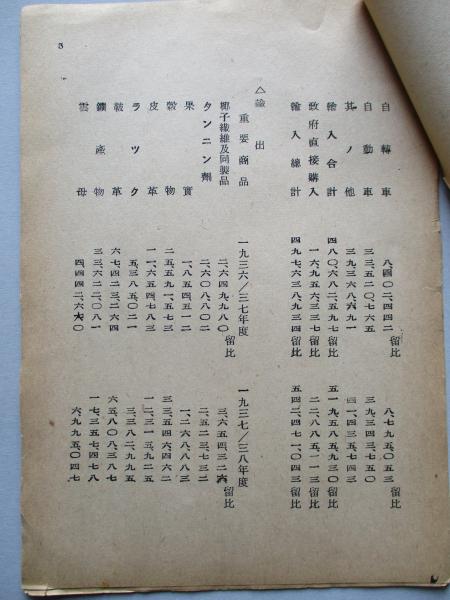 3
自轉車 八、四〇二、四四二留比 八、七九五、〇五三留比
自動車 三三、五二〇、七六五 三九、三四三、七五〇
其ノ他 三九、三六八、六九一
輸入合計 四八〇、六八二、五九七留比 五一九、五八五、九三〇留比
政府直接購入 一六、九五六、三三七留比 二二、八八五、一一三留比
輸入總計 四九七、六三八、九三四留比 五四二、四七一、〇四三留比
△輸出
重要商品 一九三六/三七年度 一九三七/三八年度
椰子纖維及同製品 二、六四九、九八〇留比 三、六五四、三二六留比
タンニン劑 二、六〇八、八〇二 二、五二三、七三二
果實 一、八五四、五一二 一、二六八、八八三
穀物 二五、五九一、五七三 三三、五四六、四六二
皮革 一一、六五四、七八三 一二、三一五、九二五
ラツク 五、三八五、〇二一 三、三八二、九九五
革 六七、四二三、二六四 六五、八〇八、三八七
鑛產物 三三、六二二、〇八一 一七、三五七、四七八
雲母 六、九九五、〇四七